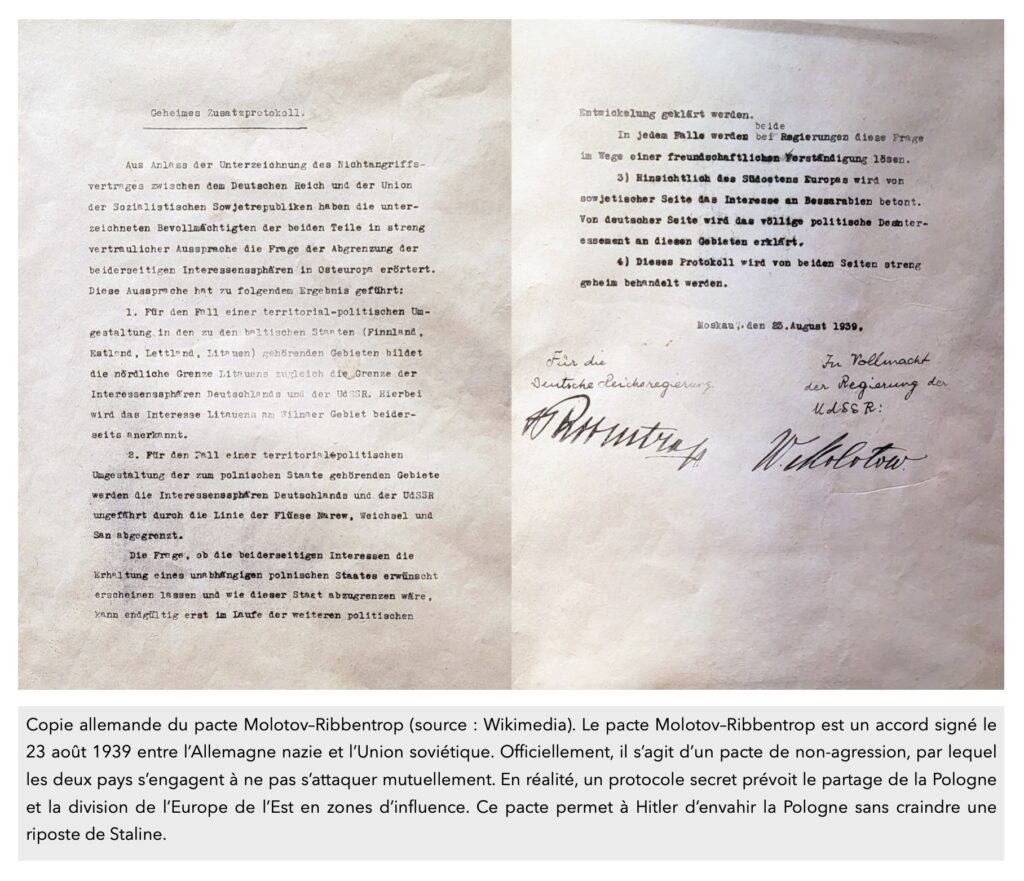 Geheimes Zusatzprotokoll.
Aus Anlass der Unterzeichnung des Nichtangriffs-
vertrages zwischen dem Deutschen Reich und der Union
der Sozialistischen Sowjetrepubliken haben die unter-
zeichneten Bevollmächtigten der beiden Teile in streng
vertraulicher Aussprache die Frage der Abgrenzung der
beiderseitigen Interessenssphären in Osteuropa erörtert.
Diese Aussprache hat zu folgendem Ergebnis geführt:
1. Für den Fall einer territorial-politischen Um-
gestaltung in den zu den baltischen Staaten (Finnland,
Estland, Lettland, Litauen) gehörenden Gebieten bildet
die nördliche Grenze Litauens zugleich die Grenze der
Interessensphären Deutschlands und der UdSSR. Hierbei
wird das Interesse Litauens am Wilnaer Gebiet beider-
seits anerkannt.
2. Für den Fall einer territorial-politischen
Umgestaltung der zum polnischen Staate gehörenden Gebiete
werden die Interessensphären Deutschlands und der UdSSR
ungefährt durch die Linie der Flüsse Narew, Weichsel und
San abgegrenzt.
Die Frage, ob die beiderseitigen Interessen die
Erhaltung eines unabhängigen polnischen Staates erwünscht
erscheinen lassen und wie dieser Staat abzugrenzen wäre,
kann endgültig erst im Laufe der weiteren politischen
Entwickelung geklärt werden.
beide
In jedem Falle werden bei Regierungen diese Frage
im Wege einer freundschaftlichen Verständigung lösen.
3) Hinsichtlich des Südostens Europas wird von
sowjetischer Seite das Interesse an Bessarabien betont.
Von deutscher Seite wird das völlige politische Desinter-
essement an diesen Gebieten erklärt.
4) Dieses Protokoll wird von beiden Seiten streng
geheim behandelt werden.
Moskau, den 23. August 1939.
Für die
Deutsche Reichsregierung
Ribbentrop
In Vollmacht
der Regierung der
UdSSR:
W. Molotow
Copie allemande du pacte Molotov–Ribbentrop (source : Wikimedia). Le pacte Molotov–Ribbentrop est un accord signé le
23 août 1939 entre l’Allemagne nazie et l’Union soviétique. Officiellement, il s’agit d’un pacte de non-agression, par lequel
les deux pays s’engagent à ne pas s’attaquer mutuellement. En réalité, un protocole secret prévoit le partage de la Pologne
et la division de l’Europe de l’Est en zones d’influence. Ce pacte permet à Hitler d’envahir la Pologne sans craindre une
riposte de Staline.